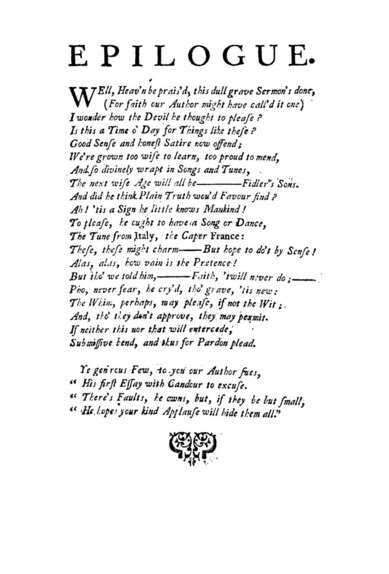 EPILOGUE.
WEll, Heav'n be prais'd, this dull grave Sermon's done,
(For faith our Author might have call'd it one)
I wonder how the Devil he thought to please?
Is this a Time o' Day for Things like these?
Good Sense and honest Satire now offend;
We're grown too wise to learn, too proud to mend,
And so divinely wrapt in Songs and Tunes,
The next wise Age will all be——Fidler's Sons.
And did he think Plain Truth wou'd Favour find?
Ah! 'tis a Sign he little knows Mankind!
To please, he ought to have a Song or Dance,
The Tune from Italy, the Caper France:
These, these might charm——But hope to do't by Sense!
Alas, alas, how vain is the Pretence!
But tho' we told him,——Faith, 'twill never do;——
Pho, never fear, he cry'd, tho' grave, 'tis new:
The Whim, perhaps, may please, if not the Wit;
And, tho' they don't approve, they may permit.
If neither this nor that will entercede,
Submissive bend, and thus for Pardon plead.
Ye gen'rous Few, to you our Author sues,
“ His first Essay with Candour to excuse.
“ There's Faults, he owns, but, if they be but small,
“ He hopes your kind Applause will hide them all.”